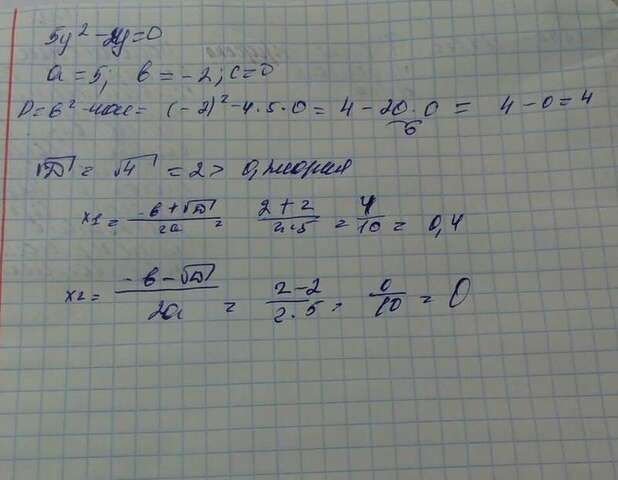 5y² - 2y = 0
a = 5; в = -2; c = 0
D = в² - 4ac = (-2)² - 4·5·0 = 4 - 20·0 = 4 - 0 = 4
√D = √4 = 2 > 0,
x1 = -в + √D / 2a = 2 + 2 / 2·5 = 4 / 10 = 0,4
x2 = -в - √D / 2a = 2 - 2 / 2·5 = 0 / 10 = 0